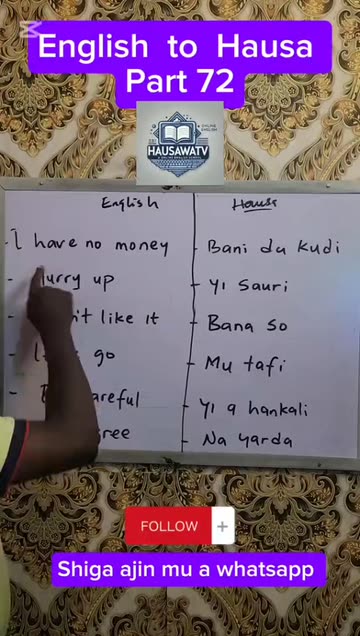 English to Hausa
Part 72
HAUSAWATV
English Hausa
- I have no money - Bani da kudi
- Hurry up - Yi sauri
't like it - Bana so
- go - Mu tafi
- areful - Yi a hankali
ree - Na yarda
FOLLOW +
Shiga ajin mu a whatsapp